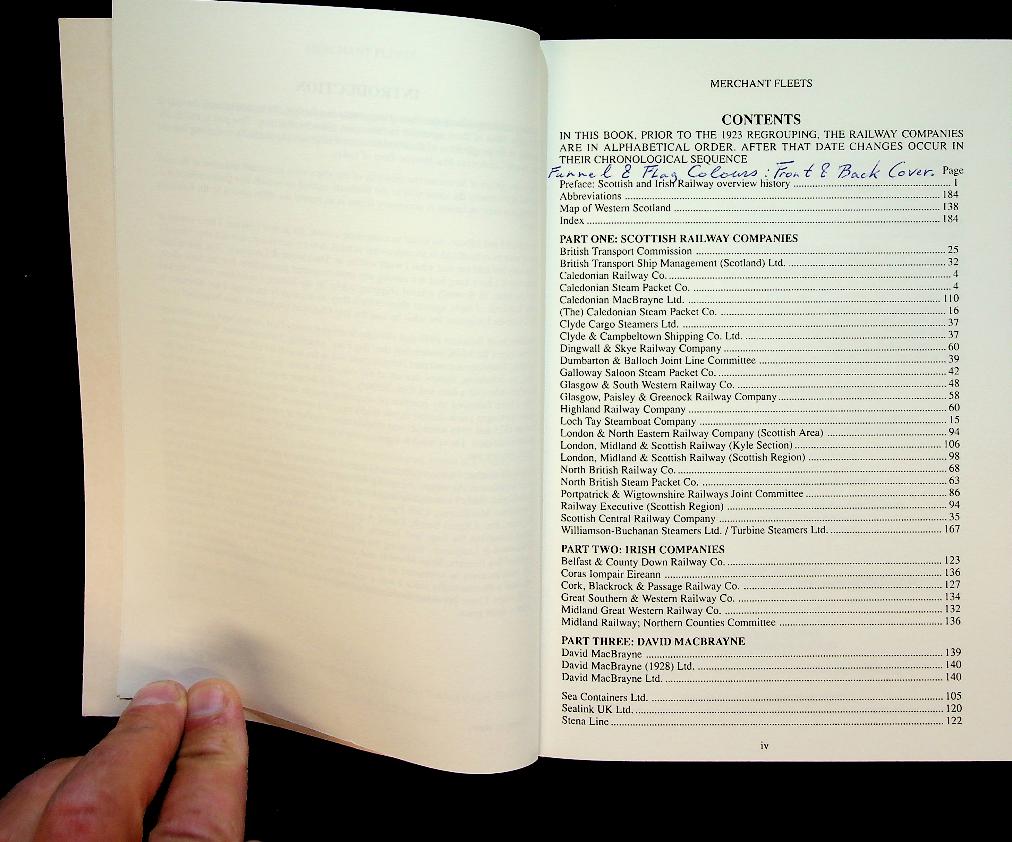 INTRODUCTION
MERCHANT FLEETS
CONTENTS
IN THIS BOOK, PRIOR TO THE 1923 REGROUPING, THE RAILWAY COMPANIES
ARE IN ALPHABETICAL ORDER. AFTER THAT DATE CHANGES OCCUR IN
THEIR CHRONOLOGICAL SEQUENCE
Funnel & Flag Colours : Front & Back Cover. Page
Preface: Scottish and Irish Railway overview history ........ 1
Abbreviations ........ 184
Map of Western Scotland ........ 138
Index ........ 184
PART ONE: SCOTTISH RAILWAY COMPANIES
British Transport Commission ........ 25
British Transport Ship Management (Scotland) Ltd. ........ 32
Caledonian Railway Co. ........ 4
Caledonian Steam Packet Co. ........ 4
Caledonian MacBrayne Ltd. ........ 110
(The) Caledonian Steam Packet Co. ........ 16
Clyde Cargo Steamers Ltd. ........ 37
Clyde & Campbeltown Shipping Co. Ltd. ........ 37
Dingwall & Skye Railway Company ........ 60
Dumbarton & Balloch Joint Line Committee ........ 39
Galloway Saloon Steam Packet Co. ........ 42
Glasgow & South Western Railway Co. ........ 48
Glasgow, Paisley & Greenock Railway Company ........ 58
Highland Railway Company ........ 60
Loch Tay Steamboat Company ........ 15
London & North Eastern Railway Company (Scottish Area) ........ 94
London, Midland & Scottish Railway (Kyle Section) ........ 106
London, Midland & Scottish Railway (Scottish Region) ........ 98
North British Railway Co. ........ 68
North British Steam Packet Co. ........ 63
Portpatrick & Wigtownshire Railways Joint Committee ........ 86
Railway Executive (Scottish Region) ........ 94
Scottish Central Railway Company ........ 35
Williamson-Buchanan Steamers Ltd. / Turbine Steamers Ltd. ........ 167
PART TWO: IRISH COMPANIES
Belfast & County Down Railway Co. ........ 123
Coras Iompair Eireann ........ 136
Cork, Blackrock & Passage Railway Co. ........ 127
Great Southern & Western Railway Co. ........ 134
Midland Great Western Railway Co. ........ 132
Midland Railway; Northern Counties Committee ........ 136
PART THREE: DAVID MACBRAYNE
David MacBrayne ........ 139
David MacBrayne (1928) Ltd. ........ 140
David MacBrayne Ltd. ........ 140
Sea Containers Ltd. ........ 105
Sealink UK Ltd. ........ 120
Stena Line ........ 122
iv